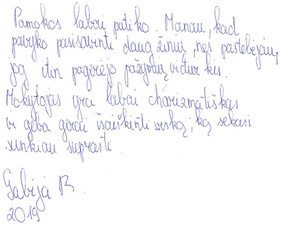 Pamokos labai patiko. Manau, kad
pavyko pasisavinti daug žinių, nes pastebėjau,
jog itin pagerėjo pažymių vidurkis.
Mokytojas yra labai charizmatiškas
ir geba gerai išaiškinti viską, ką sekasi
sunkiau suprasti.
Gabija B.
2019